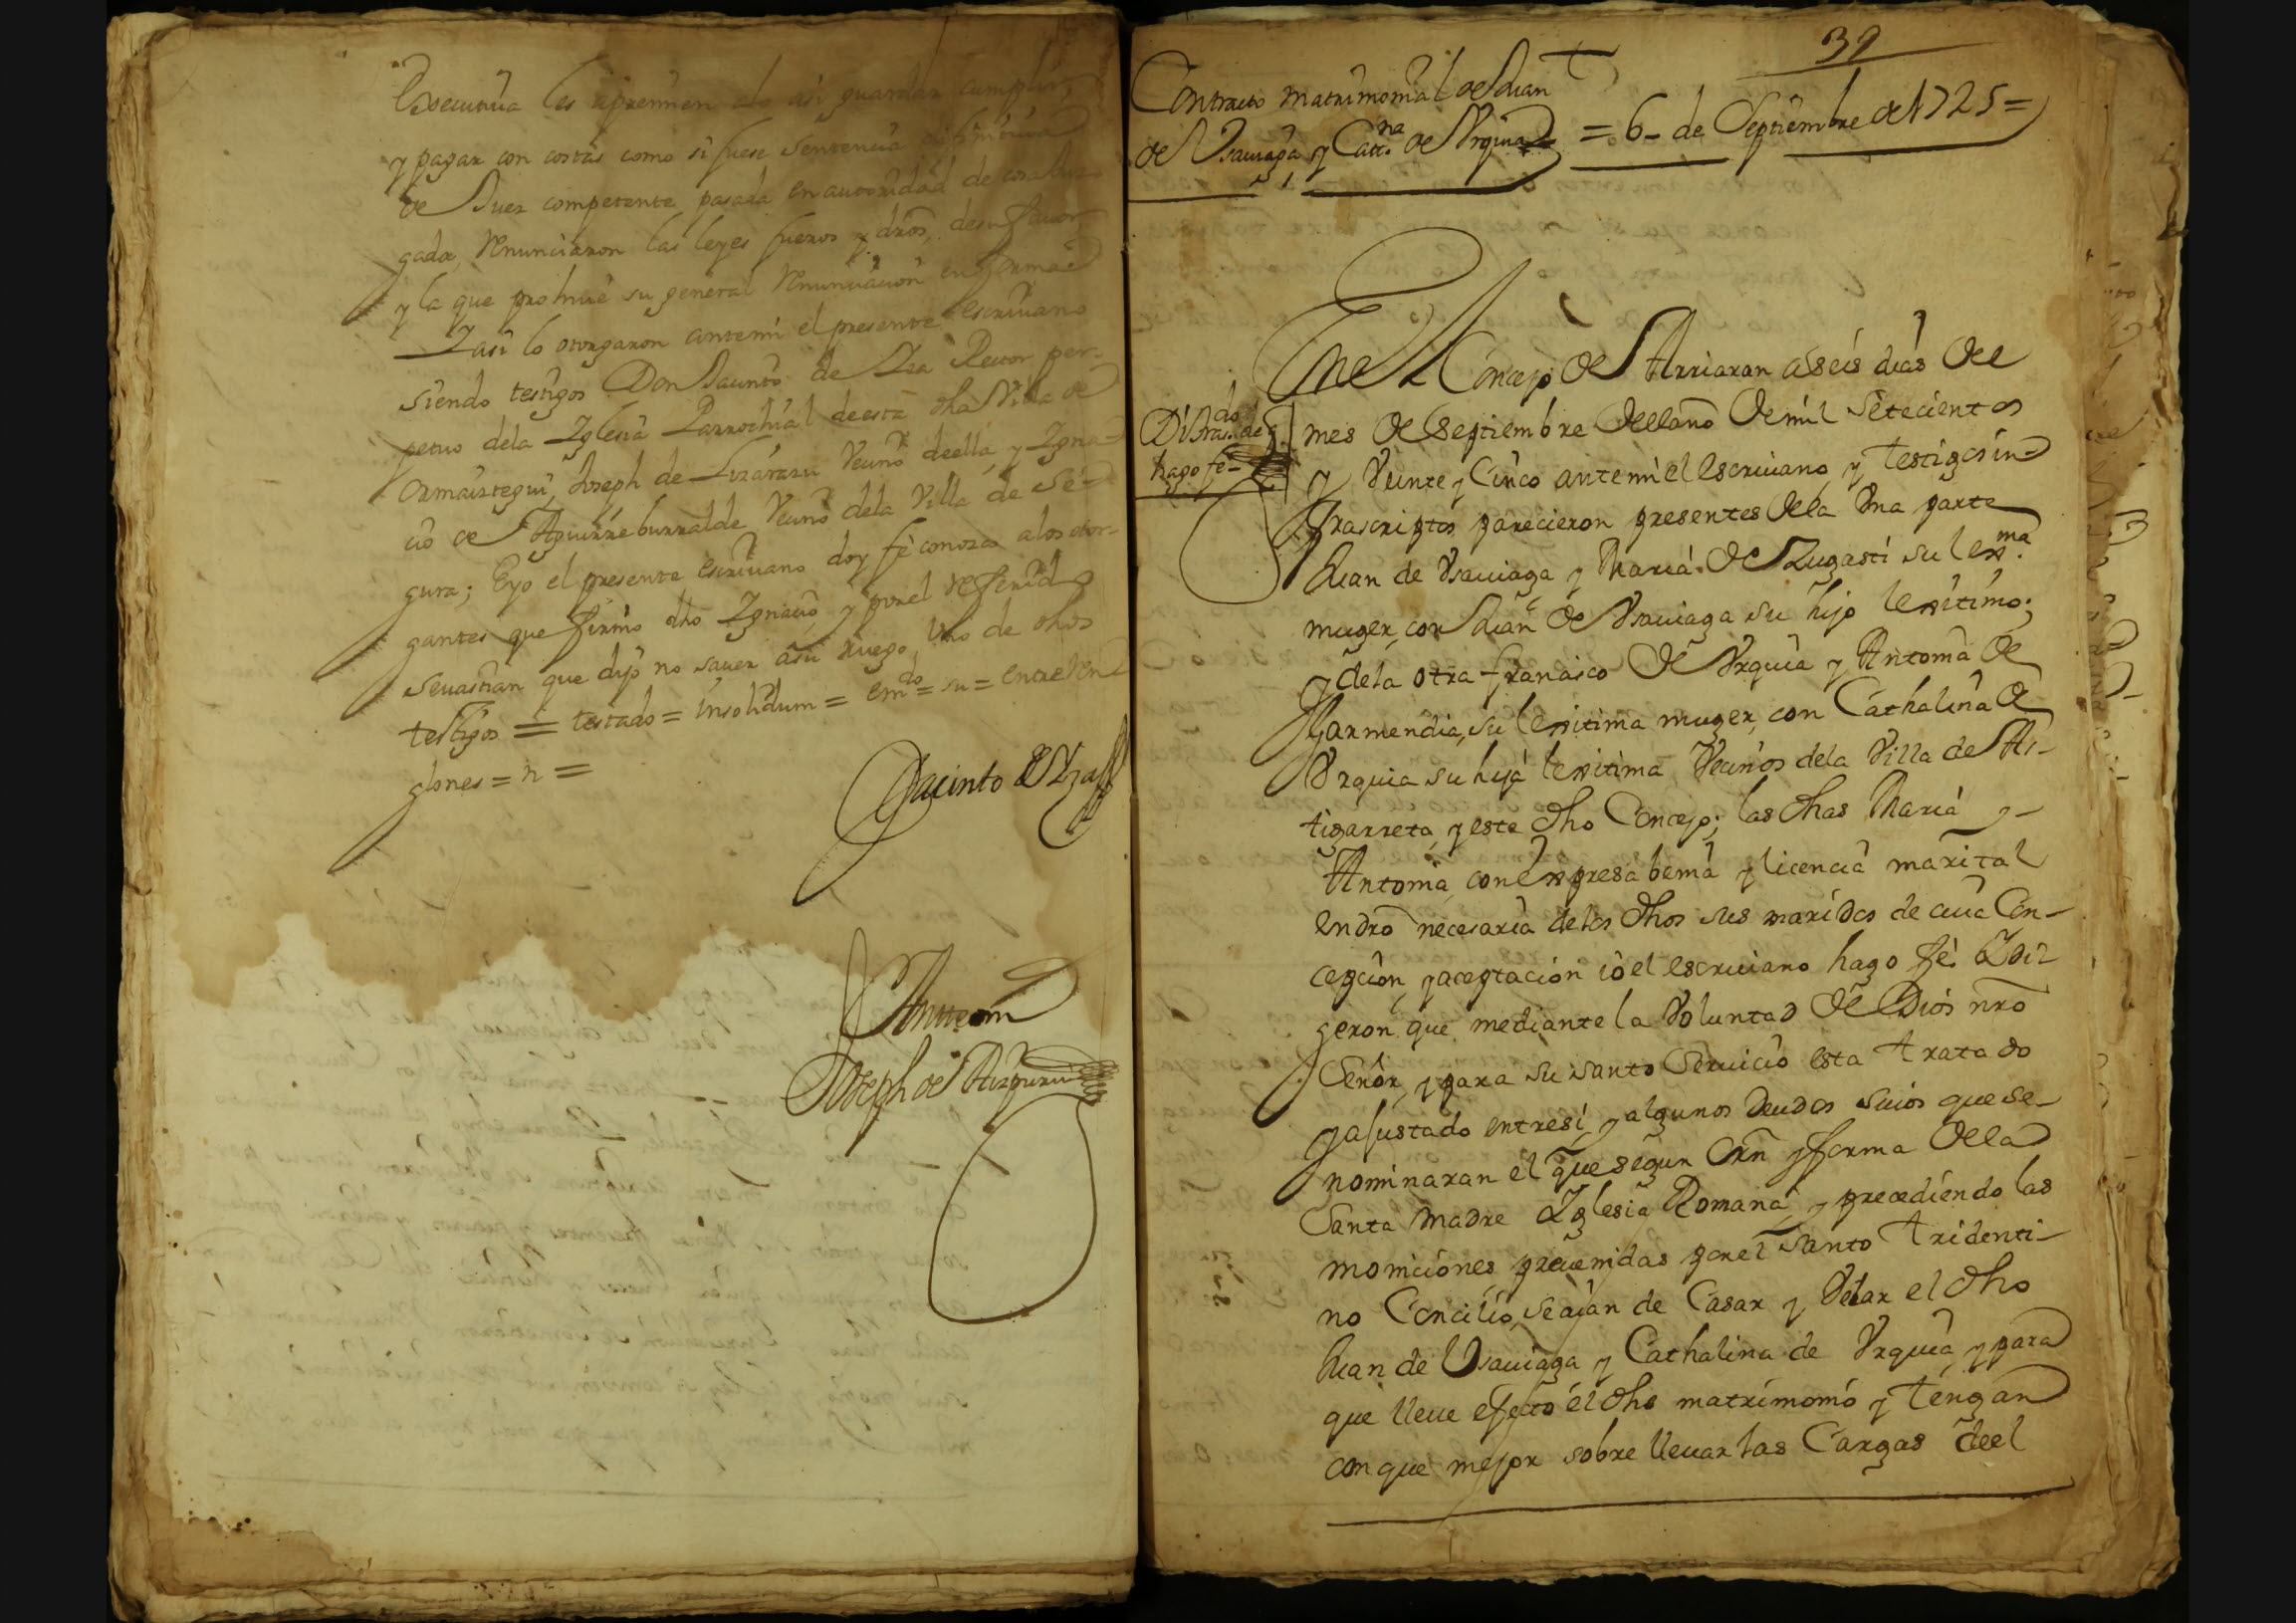 Executiva les apremien alo asi guardar cumplir,
y pagar con costas como si fuese sentencia difinitiva
de Juez competente pasada en autoridad de cosa Juz-
gada, renunciaron las leyes fueros y dros, de su favor,
y la que prohive su general renunciacion en forma
Y asi lo otorgaron antemi el presente escrivano
siendo testigos Don Jacinto de Yza Rector per-
petuo dela Yglesia Parrochial de esta dha Villa de
Ormaiztegui, Joseph de Lizarazu Vecino de ella, y Ygna-
cio de Aguirreburralde Vecino dela Villa de Se-
gura; Eyo el presente escrivano doy fe conozco alos otor-
gantes que firmo dho Ygnacio, y por el referido
Sevastian que dijo no saver asu ruego, Uno de dhos
testigos = testado = insolidum = emdo = su = entreren
glones = n =
Jacinto de Yza
Antemi
Joseph de Aizpuru
39
Contracto matrimonial de Juan
de Vsauiaga y Catna de Vrquia = 6 - de Septiembre de 1725 =
Enel Concejo de Arriaran a seis dias del
mes de Septiembre del año de mil Setecientos
y Veinte y Cinco antemi el escriuano, y testigos in-
frascriptos parecieron presentes dela Vna parte
Juan de Vsauiaga y Maria de Zugasti su lexma
muger, con Juan de Vsauiaga su hijo lexitimo;
y dela otra Francisco de Vrquia y Antonia de
Garmendia, su lexitima muger, con Cathalina de
Vrquia su hija lexitima Vecinos dela Villa de As-
tigarreta, y este dho Concejo; las dhas Maria y
Antonia con expresa benia y licencia marital
en dro necesaria de los dhos sus maridos de cuia Con-
cepcion, y aceptacion io el escriuano hago fe: Y Di-
geron que mediante la Voluntad de Dios nro
Señor, y para su santo Seruicio esta tratado
y ajustado entresi, y algunos deudos suios que se
nominaran el que segun orn y forma dela
Santa Madre Yglesia Romana, y precediendo las
moniciones preuenidas por el Santo Tridenti-
no Concilio, se aian de Casar y Velar el dho
Juan de Vsauiaga y Cathalina de Vrquia, y para
que lleue efecto el dho matrimonio y tengan
con que mejor sobre lleuar las Cargas deel
hago fe